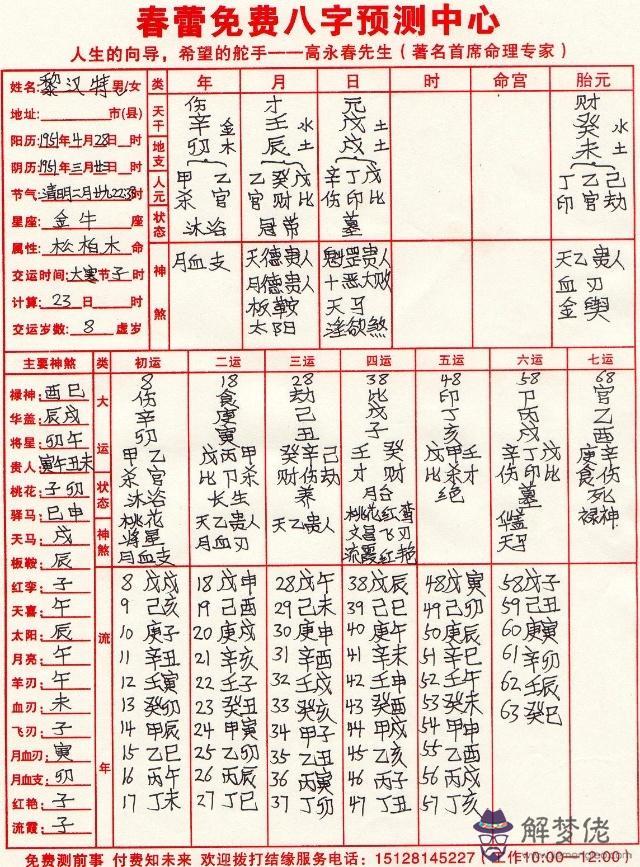 春蕾免费八字预测中心
人生的向导，希望的舵手——高永春先生（著名首席命理专家）
姓名:黎汉特 男/女 类 年 月 日 时 命宫 胎元
地址: 市(县)
阳历:1951年4月28日 时
阴历:1951年三月廿三日 时
节气:清明二月廿九22:38时
星座: 金牛 座
属性: 松柏木 命
交运时间:大寒节子时
计算: 23 日 时
交运岁数: 8 虚岁
天干 伤 才 元 财
辛金 壬水 戊土 癸水
地支 卯木 辰土 戌土 未土
人元 甲 乙 乙癸戊 辛丁戊 丁乙己
杀 官 官财比 伤印比 印官劫
状态 沐浴 冠带 墓
神煞 月血支 天德贵人 魁罡贵人 天乙贵人
月德贵人 十恶大败 血刃
板鞍 天马 金舆
太阳 淫欲煞
主要神煞 类 初运 二运 三运 四运 五运 六运 七运
大运 8 18 28 38 48 58 68
伤 食 劫 比 印 卩 官
辛 庚 己 戊 丁 丙 乙
卯 寅 丑 子 亥 戌 酉
甲 乙 戊丙甲 癸辛己 壬 癸 戊甲壬 辛丁戊 庚辛
杀 官 比卩杀 财伤劫 才 财 比杀才 伤印比 食伤
状态 沐浴 长生 养 绝 墓 死
神煞 桃花 天乙贵人 天乙贵人 华盖 禄神
将星 月血刃 天马
月血支
流霞红艳
禄神: 酉巳
华盖: 辰戌
将星: 卯午
贵人: 寅午丑未
桃花: 子卯
驿马: 巳申
天马: 戌
板鞍: 辰
红孪: 子
天喜: 午
太阳: 辰
月亮: 午
羊刃: 午
血刃: 未
飞刃: 子
月血刃: 寅
月血支: 卯
红艳: 子
流霞: 子
流年
8 戊戌 18 戊申 28 戊午 38 戊辰 48 戊寅 58 戊子
9 己亥 19 己酉 29 己未 39 己巳 49 己卯 59 己丑
10 庚子 20 庚戌 30 庚申 40 庚午 50 庚辰 60 庚寅
11 辛丑 21 辛亥 31 辛酉 41 辛未 51 辛巳 61 辛卯
12 壬寅 22 壬子 32 壬戌 42 壬申 52 壬午 62 壬辰
13 癸卯 23 癸丑 33 癸亥 43 癸酉 53 癸未 63 癸巳
14 甲辰 24 甲寅 34 甲子 44 甲戌 54 甲申
15 乙巳 25 乙卯 35 乙丑 45 乙亥 55 乙酉
16 丙午 26 丙辰 36 丙寅 46 丙子 56 丙戌
17 丁未 27 丁巳 37 丁卯 47 丁丑 57 丁亥
免费测前事 付费知未来 欢迎拨打结缘服务电话：15128145227（上午10:00—12:00）
解梦佬